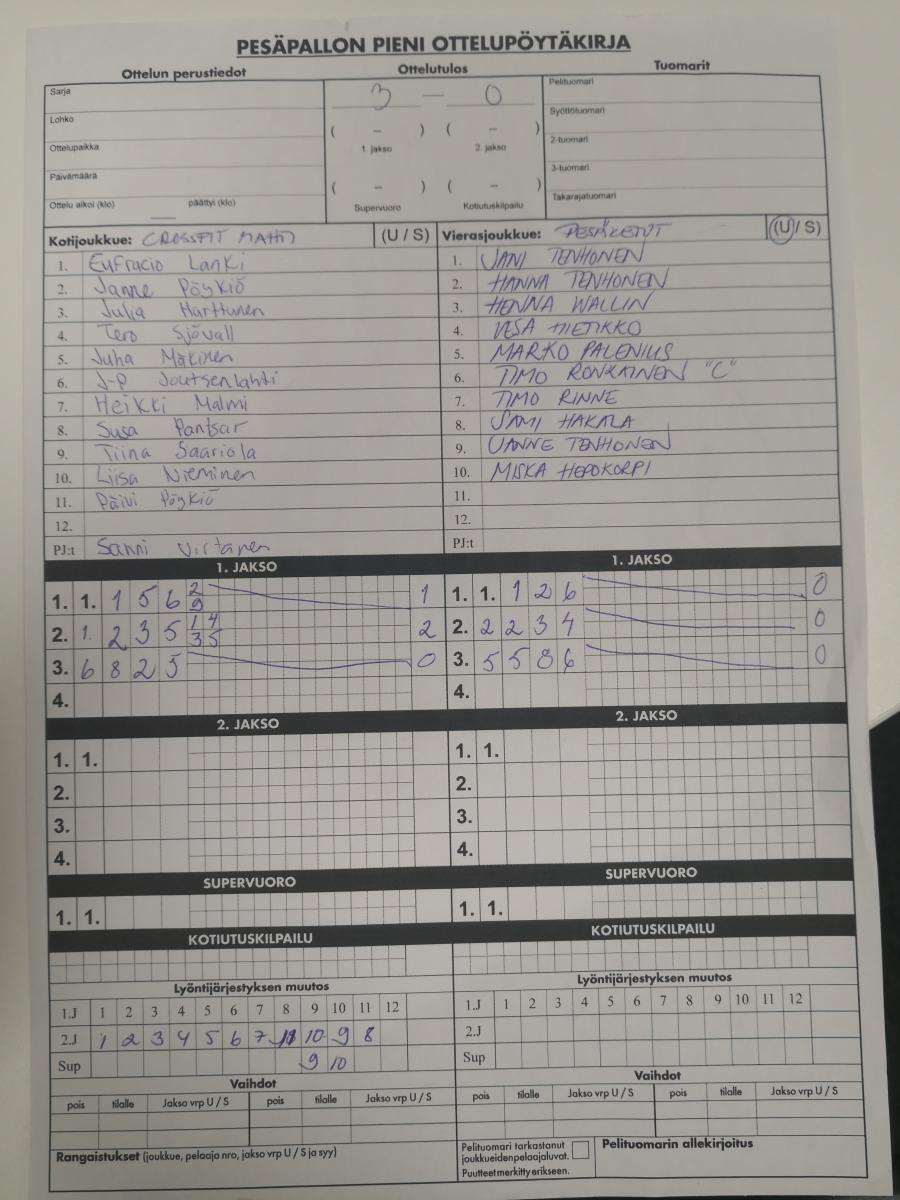 PESÄPALLON PIENI OTTELUPÖYTÄKIRJA
Ottelun perustiedot Ottelutulos Tuomarit
Sarja
Lohko
Ottelupaikka
Päivämäärä
Ottelu alkoi (klo) päättyi (klo)
3 — 0
( – ) ( – )
1. jakso 2. jakso
( – ) ( – )
Supervuoro Kotiutuskilpailu
Pelituomari
Syöttötuomari
2-tuomari
3-tuomari
Takarajatuomari
Kotijoukkue: CROSSFIT MAHTI (U / S)
1. Eufracio Lanki
2. Janne Pöykiö
3. Julia Harttunen
4. Tero Sjövall
5. Juha Mäkinen
6. J-P Joutsenlahti
7. Heikki Malmi
8. Susa Pantsar
9. Tiina Saariola
10. Liisa Nieminen
11. Päivi Pöykiö
12.
PJ:t Sanni Virtanen
Vierasjoukkue: PESÄKETUT (U / S)
1. JANI TENHONEN
2. HANNA TENHONEN
3. HENNA WALLIN
4. VESA HIETIKKO
5. MARKO PALENIUS
6. TIMO RONKAINEN "C"
7. TIMO RINNE
8. SAMI HAKALA
9. JANNE TENHONEN
10. MISKA HEPOKORPI
11.
12.
PJ:t
1. JAKSO
1. 1. 1 5 6 2 1
9
2. 1. 2 3 5 1 4 2
3 5
3. 6 8 2 5 0
4.
1. JAKSO
1. 1. 1 2 6 0
2. 2 2 3 4 0
3. 5 5 8 6 0
4.
2. JAKSO
1. 1.
2.
3.
4.
2. JAKSO
1. 1.
2.
3.
4.
SUPERVUORO
1. 1.
SUPERVUORO
1. 1.
KOTIUTUSKILPAILU
KOTIUTUSKILPAILU
Lyöntijärjestyksen muutos
1.J 1 2 3 4 5 6 7 8 9 10 11 12
2.J 1 2 3 4 5 6 7 11 10 9 8
Sup 9 10
Lyöntijärjestyksen muutos
1.J 1 2 3 4 5 6 7 8 9 10 11 12
2.J
Sup
Vaihdot
pois tilalle Jakso vrp U / S pois tilalle Jakso vrp U / S
Vaihdot
pois tilalle Jakso vrp U / S pois tilalle Jakso vrp U / S
Rangaistukset (joukkue, pelaaja nro, jakso vrp U / S ja syy)
Pelituomari tarkastanut
joukkueiden pelaajaluvat.
Puutteet merkitty erikseen.
Pelituomarin allekirjoitus